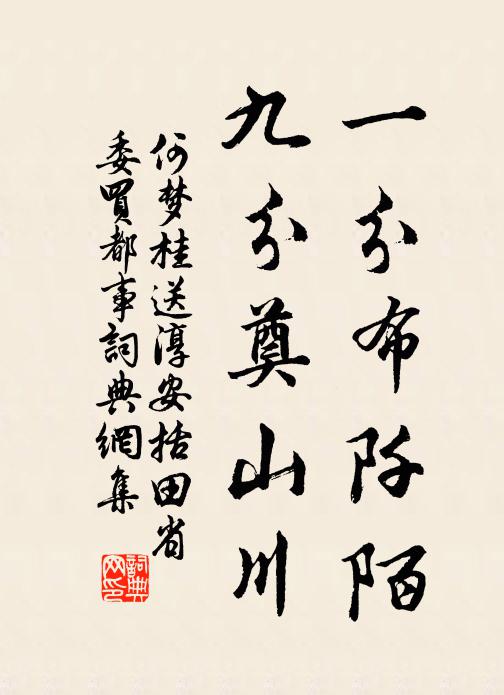 一分布阡陌
九分奠山川
何梦桂送淳安括田省
委買都事詞典網集
詞典
网印